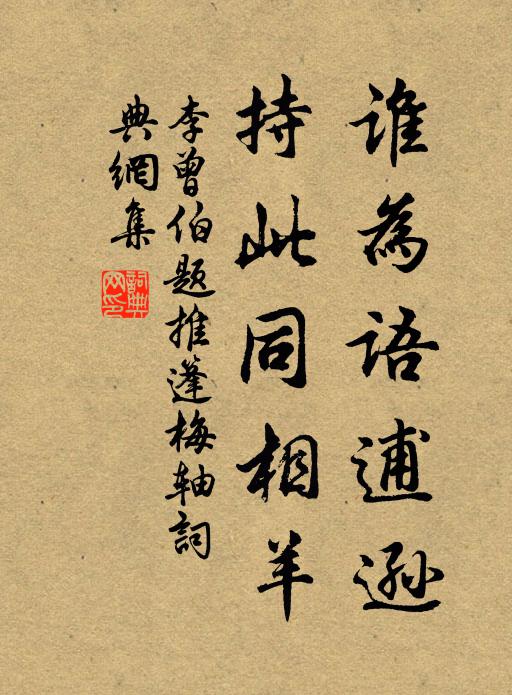 谁為语逋逊
持此同相羊
李曾伯题推蓬梅轴詞
典網集
詞典网印